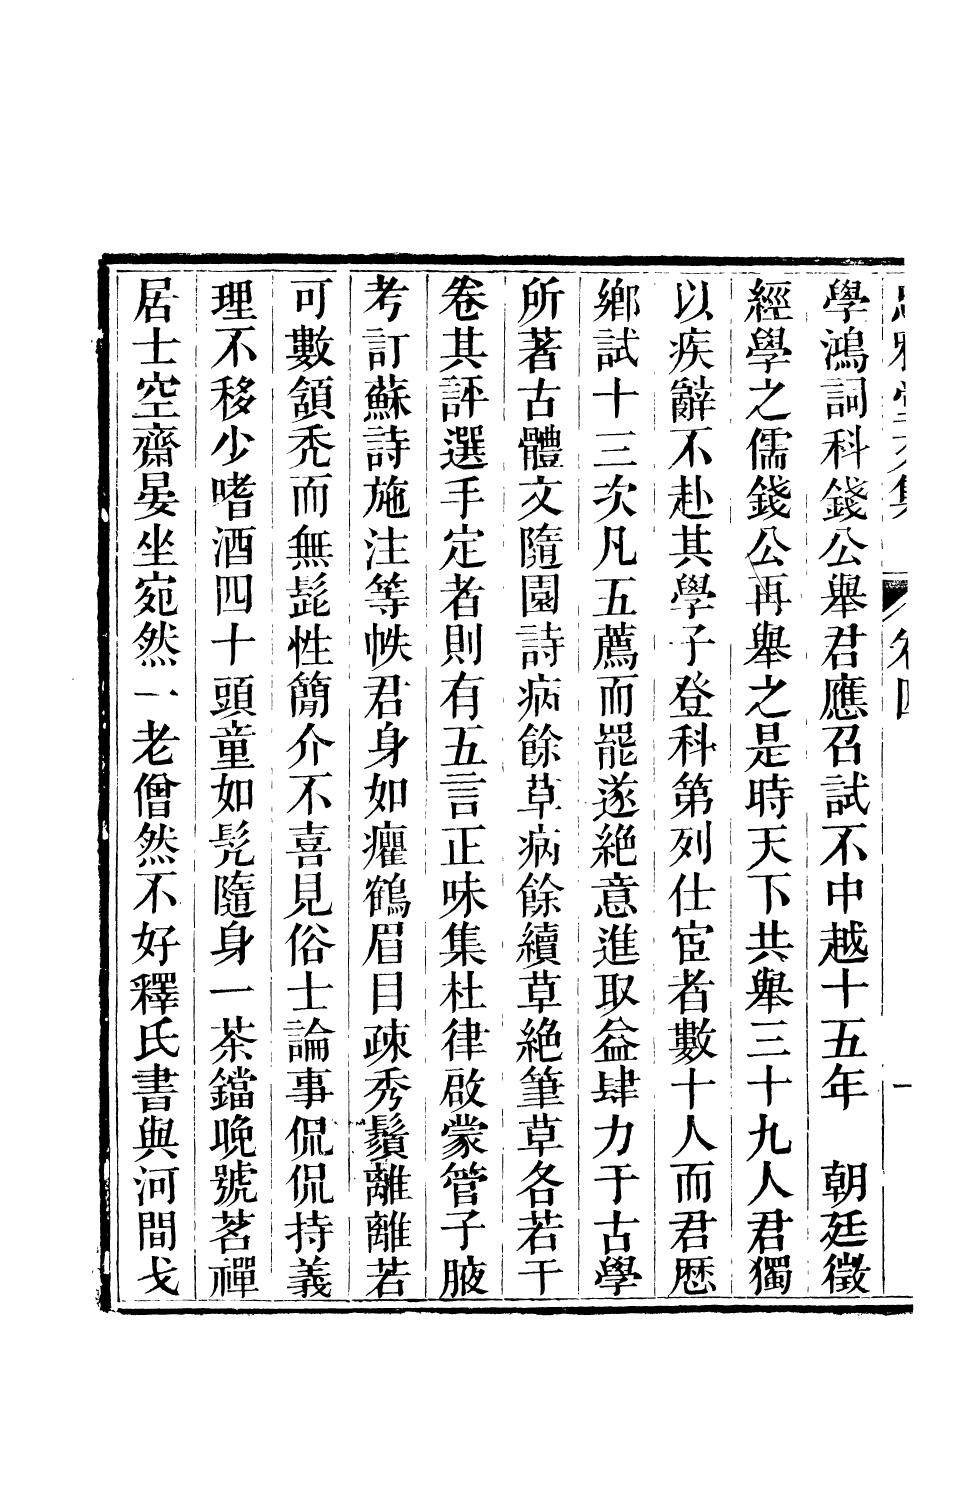 忠雅堂文集 卷四 一
學鴻詞科錢公舉君應召試不中越十五年　朝廷徵
經學之儒錢公再舉之是時天下共舉三十九人君獨
以疾辭不赴其學子登科第列仕宦者數十人而君歷
鄉試十三次凡五薦而罷遂絕意進取益肆力于古學
所著古體文隨園詩病餘草病餘續草絕筆草各若干
卷其評選手定者則有五言正味集杜律啟蒙管子腋
考訂蘇詩施注等帙君身如癯鶴眉目疎秀鬚離離若
可數頷禿而無髭性簡介不喜見俗士論事侃侃持義
理不移少嗜酒四十頭童如髡隨身一茶鐺晚號茗禪
居士空齋晏坐宛然一老僧然不好釋氏書與河間戈